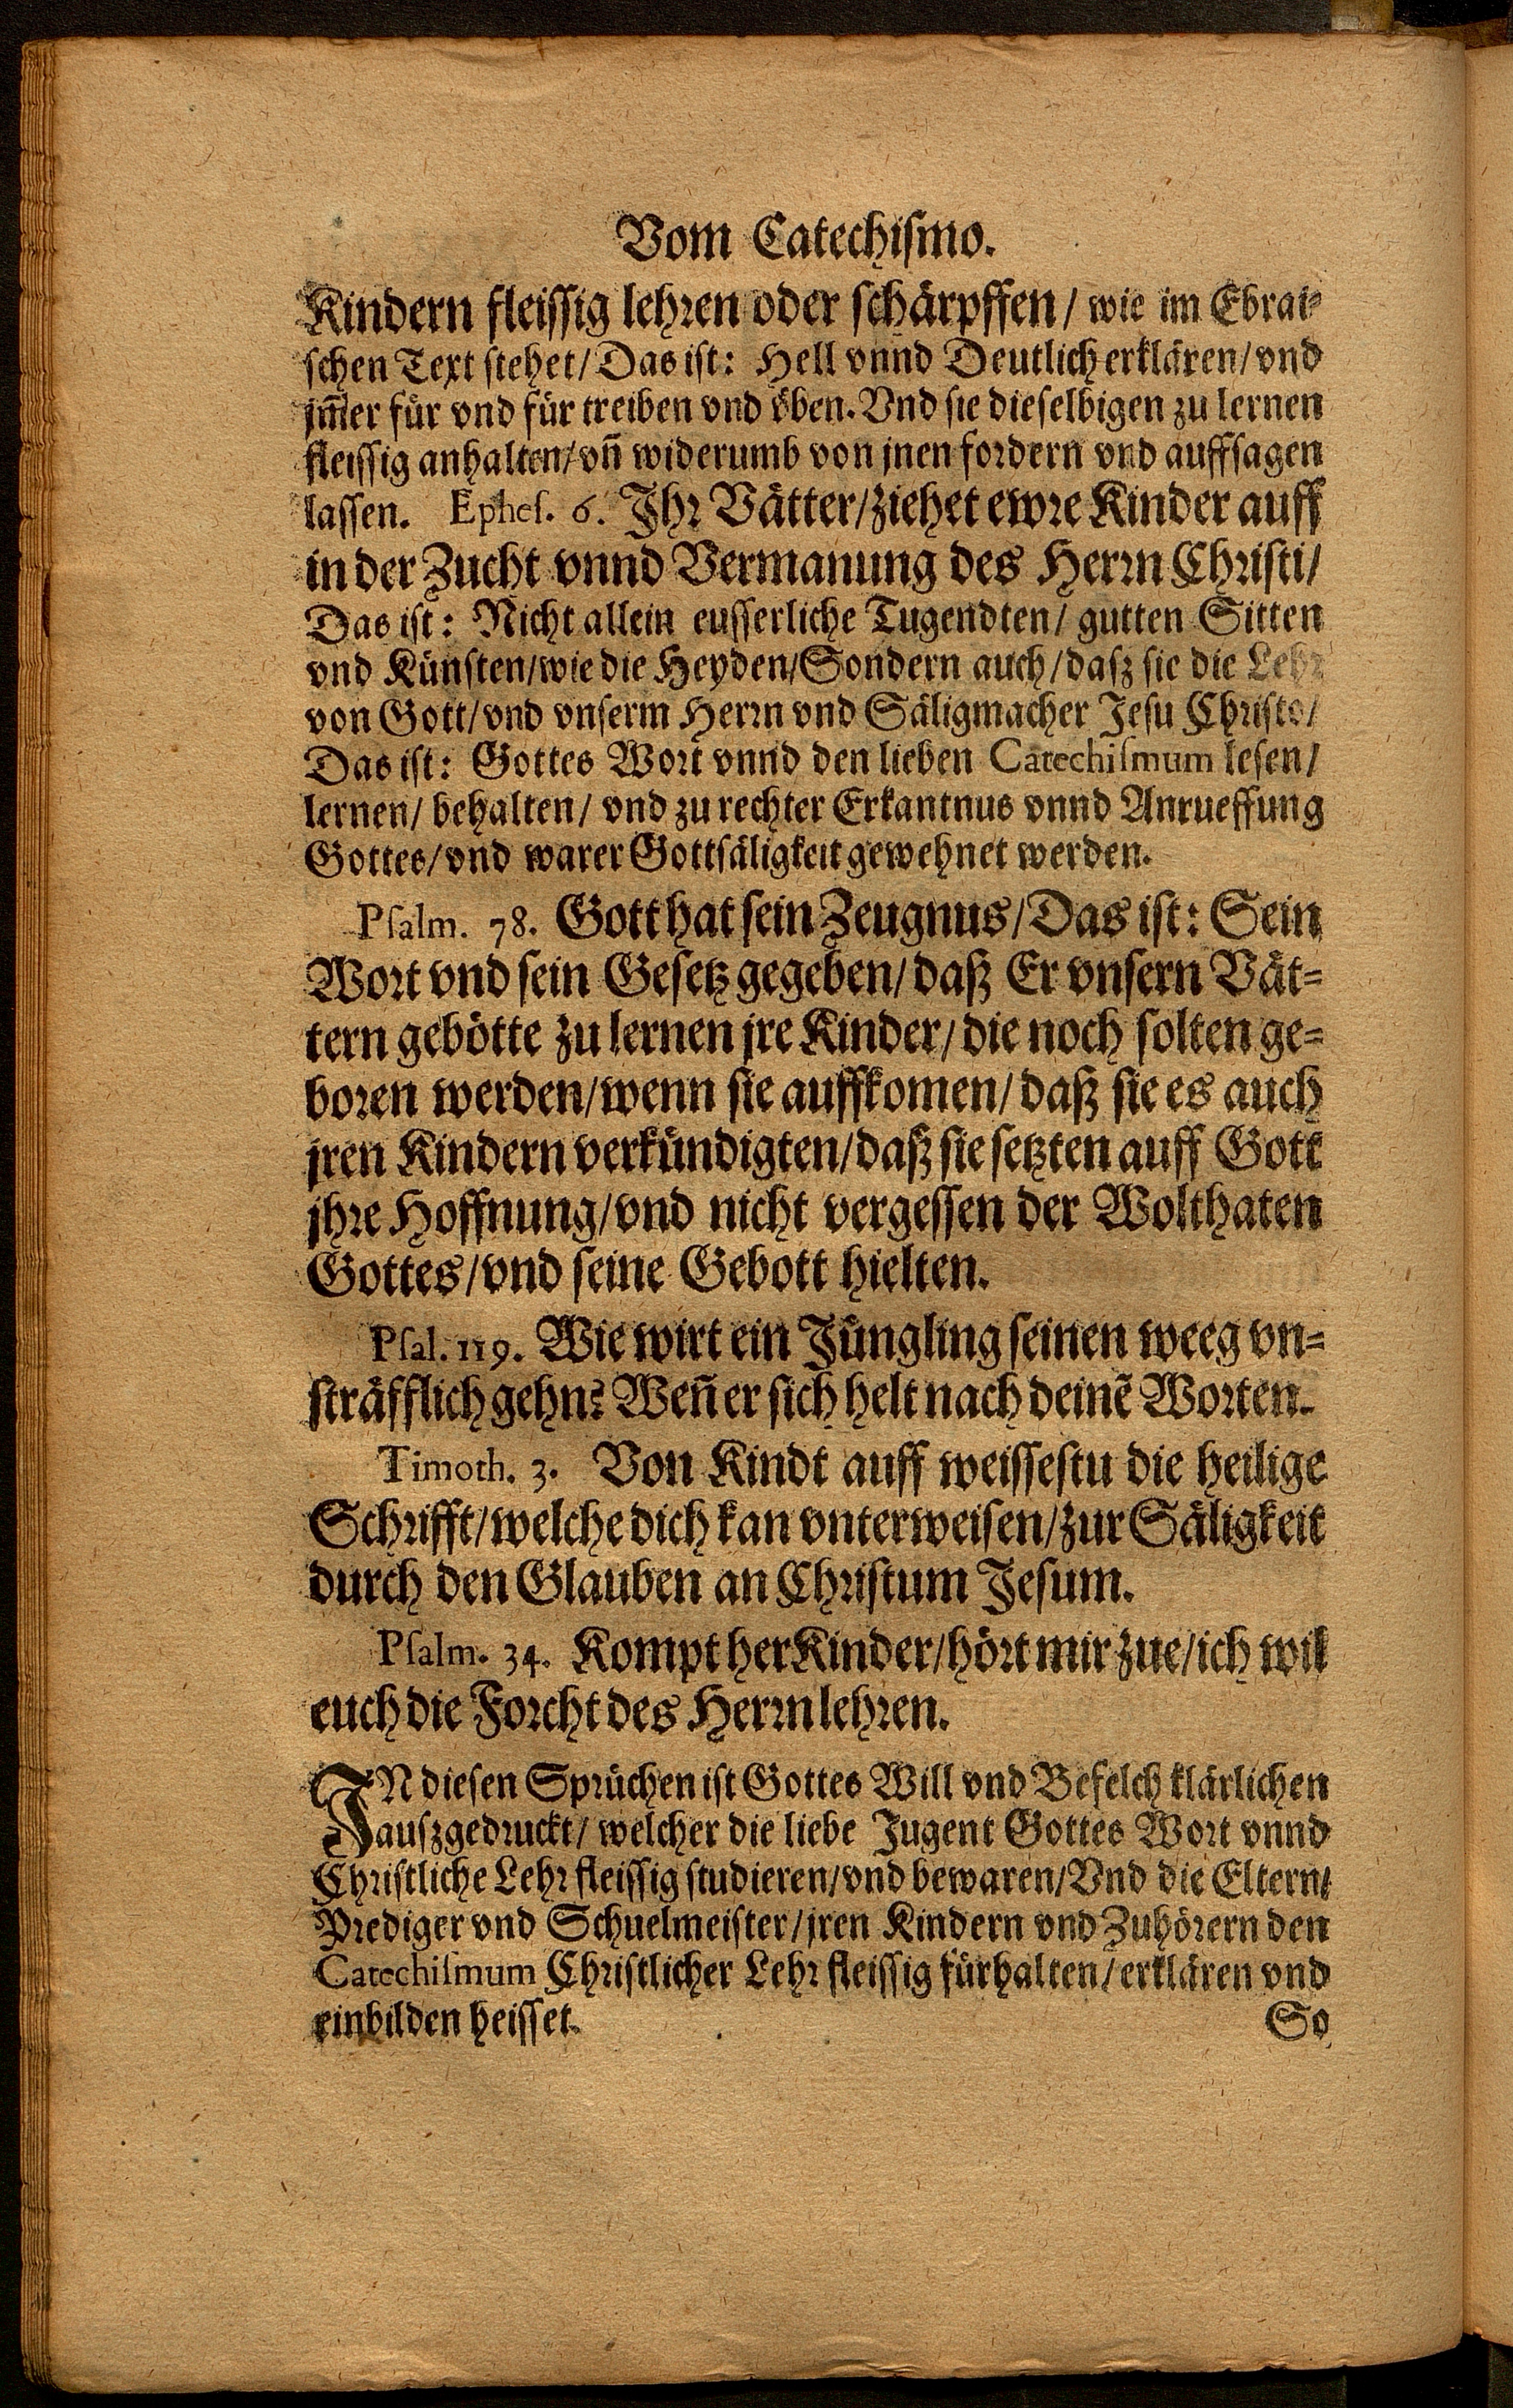 Vom Catechismo.
Kindern fleissig lehren oder schärpffen / wie im Ebrai-
schen Text stehet / Das ist: Hell vnnd Deutlich erklären / vnd
jm̃er für vnd für treiben vnd öben. Vnd sie dieselbigen zu lernen
fleissig anhalten / vñ widerumb von jnen fordern vnd auffsagen
lassen. Ephes. 6. Ihr Vätter / ziehet ewre Kinder auff
in der Zucht vnnd Vermanung des Herrn Christi /
Das ist: Nicht allein eusserliche Tugendten / gutten Sitten
vnd Künsten / wie die Heyden / Sondern auch / dasz sie die Lehr
von Gott / vnd vnserm Herrn vnd Säligmacher Jesu Christo /
Das ist: Gottes Wort vnnd den lieben Catechismum lesen /
lernen / behalten / vnd zu rechter Erkantnus vnnd Anrueffung
Gottes / vnd warer Gottsäligkeit gewehnet werden.
Psalm. 78. Gott hat sein Zeugnus / Das ist: Sein
Wort vnd sein Gesetz gegeben / daß Er vnsern Vät-
tern gebötte zu lernen jre Kinder / die noch solten ge-
boren werden / wenn sie auffkomen / daß sie es auch
jren Kindern verkündigten / daß sie setzten auff Gott
jhre Hoffnung / vnd nicht vergessen der Wolthaten
Gottes / vnd seine Gebott hielten.
Psal. 119. Wie wirt ein Jüngling seinen weeg vn-
sträfflich gehn? Weñ er sich helt nach deinẽ Worten.
Timoth. 3. Von Kindt auff weissestu die heilige
Schrifft / welche dich kan vnterweisen / zur Säligkeit
durch den Glauben an Christum Jesum.
Psalm. 34. Kompt her Kinder / hört mir zue / ich wil
euch die Forcht des Herrn lehren.
IN diesen Sprüchen ist Gottes Will vnd Befelch klärlichen
auszgedruckt / welcher die liebe Jugent Gottes Wort vnnd
Christliche Lehr fleissig studieren / vnd bewaren / Vnd die Eltern /
Prediger vnd Schuelmeister / jren Kindern vnd Zuhörern den
Catechismum Christlicher Lehr fleissig fürhalten / erklären vnd
einbilden heisset.
So